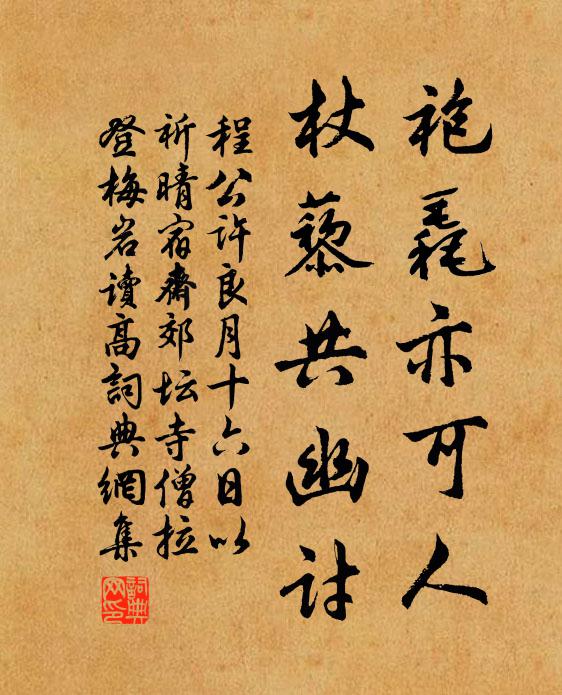 袍毳亦可人
杖藜共幽討
程公許良月十六日以
祈晴宿齋郊坛寺僧拉
登梅岩讀高詞典網集
詞典网印